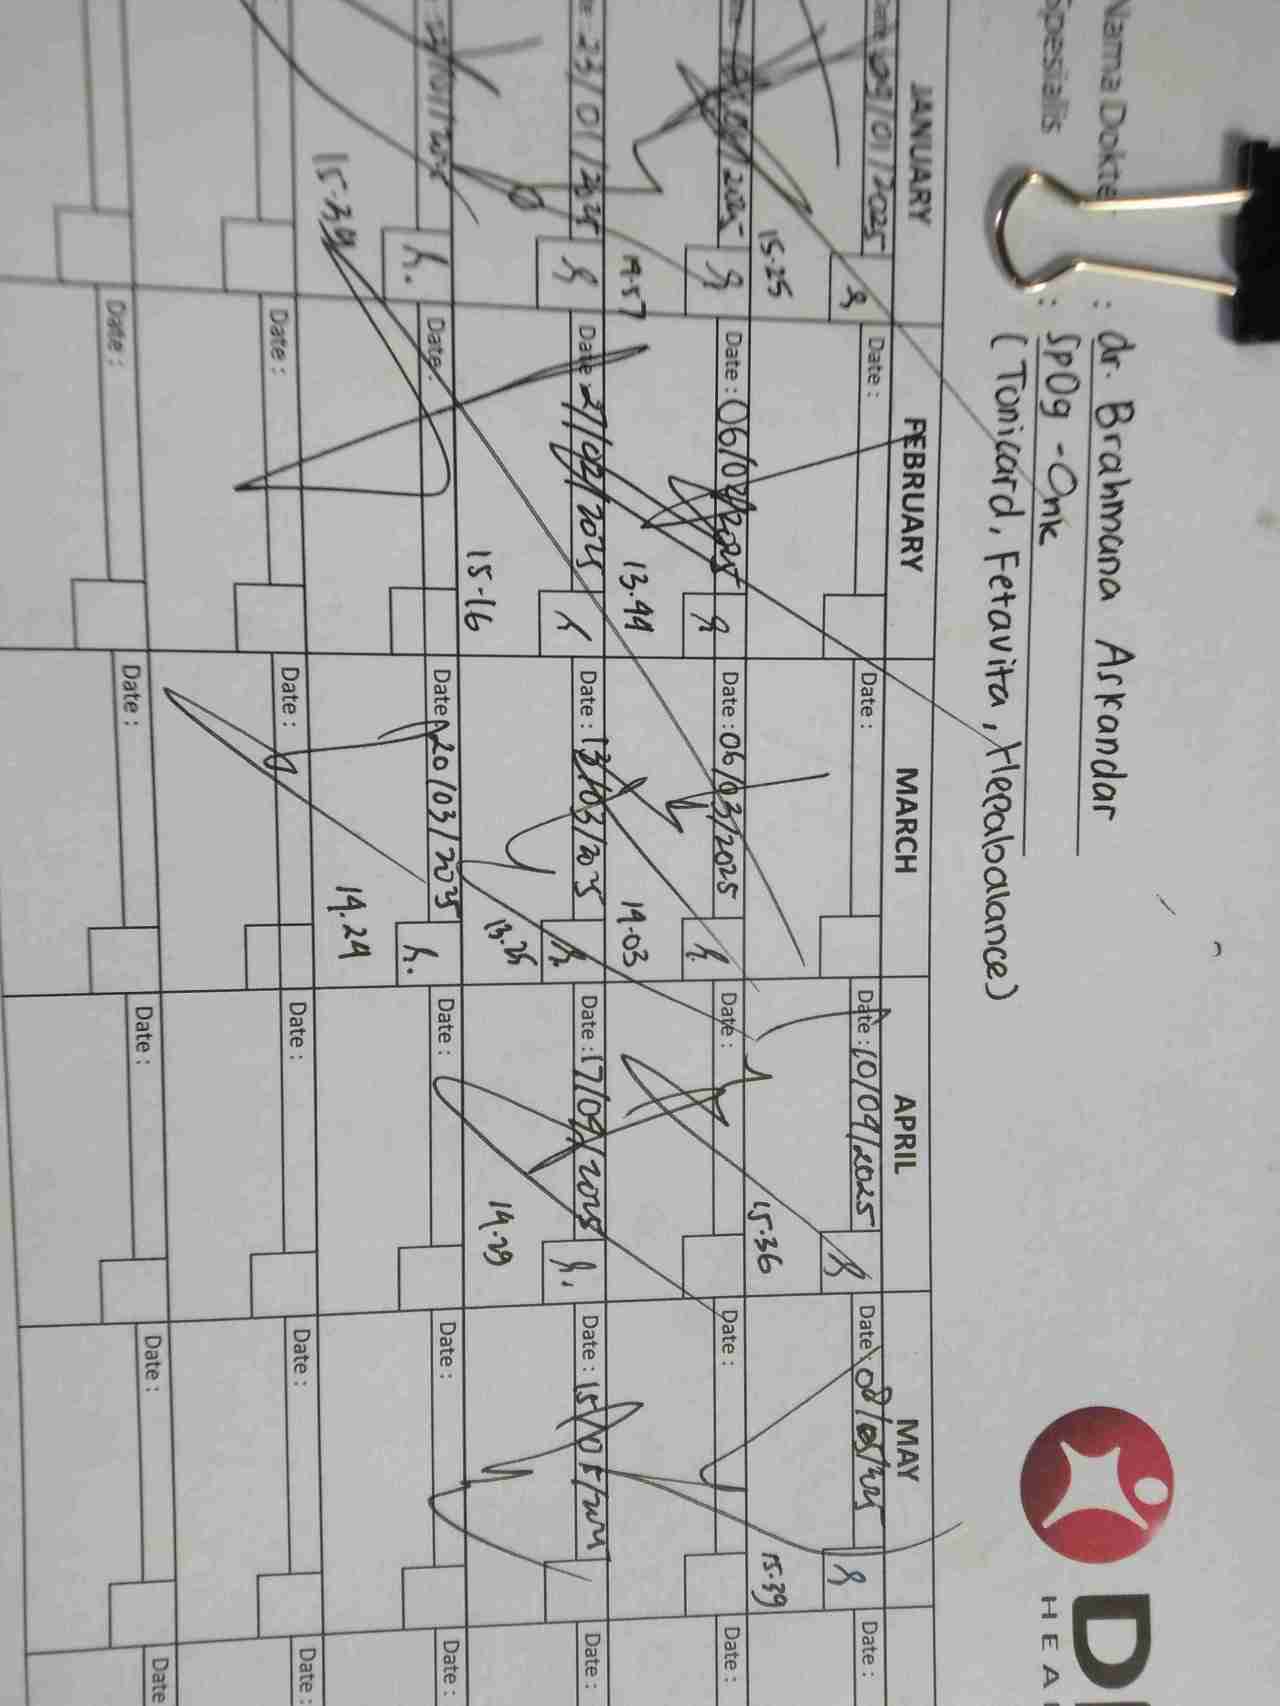 Nama Dokte : dr. Brahmana Askandar
Spesialis : SpOg - Onk
(Tonicard, Fetavita, Hepabalance)
D
HEA
JANUARY FEBRUARY MARCH APRIL MAY
Date : 09/01/2025 Date : Date : Date : 10/04/2025 Date : 08/05/2025 Date :
15.25 15.36 15.39
Date : 06/02/2025 Date : 06/03/2025 Date : Date : Date :
14.57 13.44 14.03
23/01/2025 Date : 27/02/2025 Date : 13/03/2025 Date : 17/04/2025 Date : 15/05/2025 Date :
15.16 13.25 14.29
Date : Date : 20/03/2025 Date : Date : Date :
15.34 14.24
Date : Date : Date : Date : Date :
Date : Date : Date : Date : Date